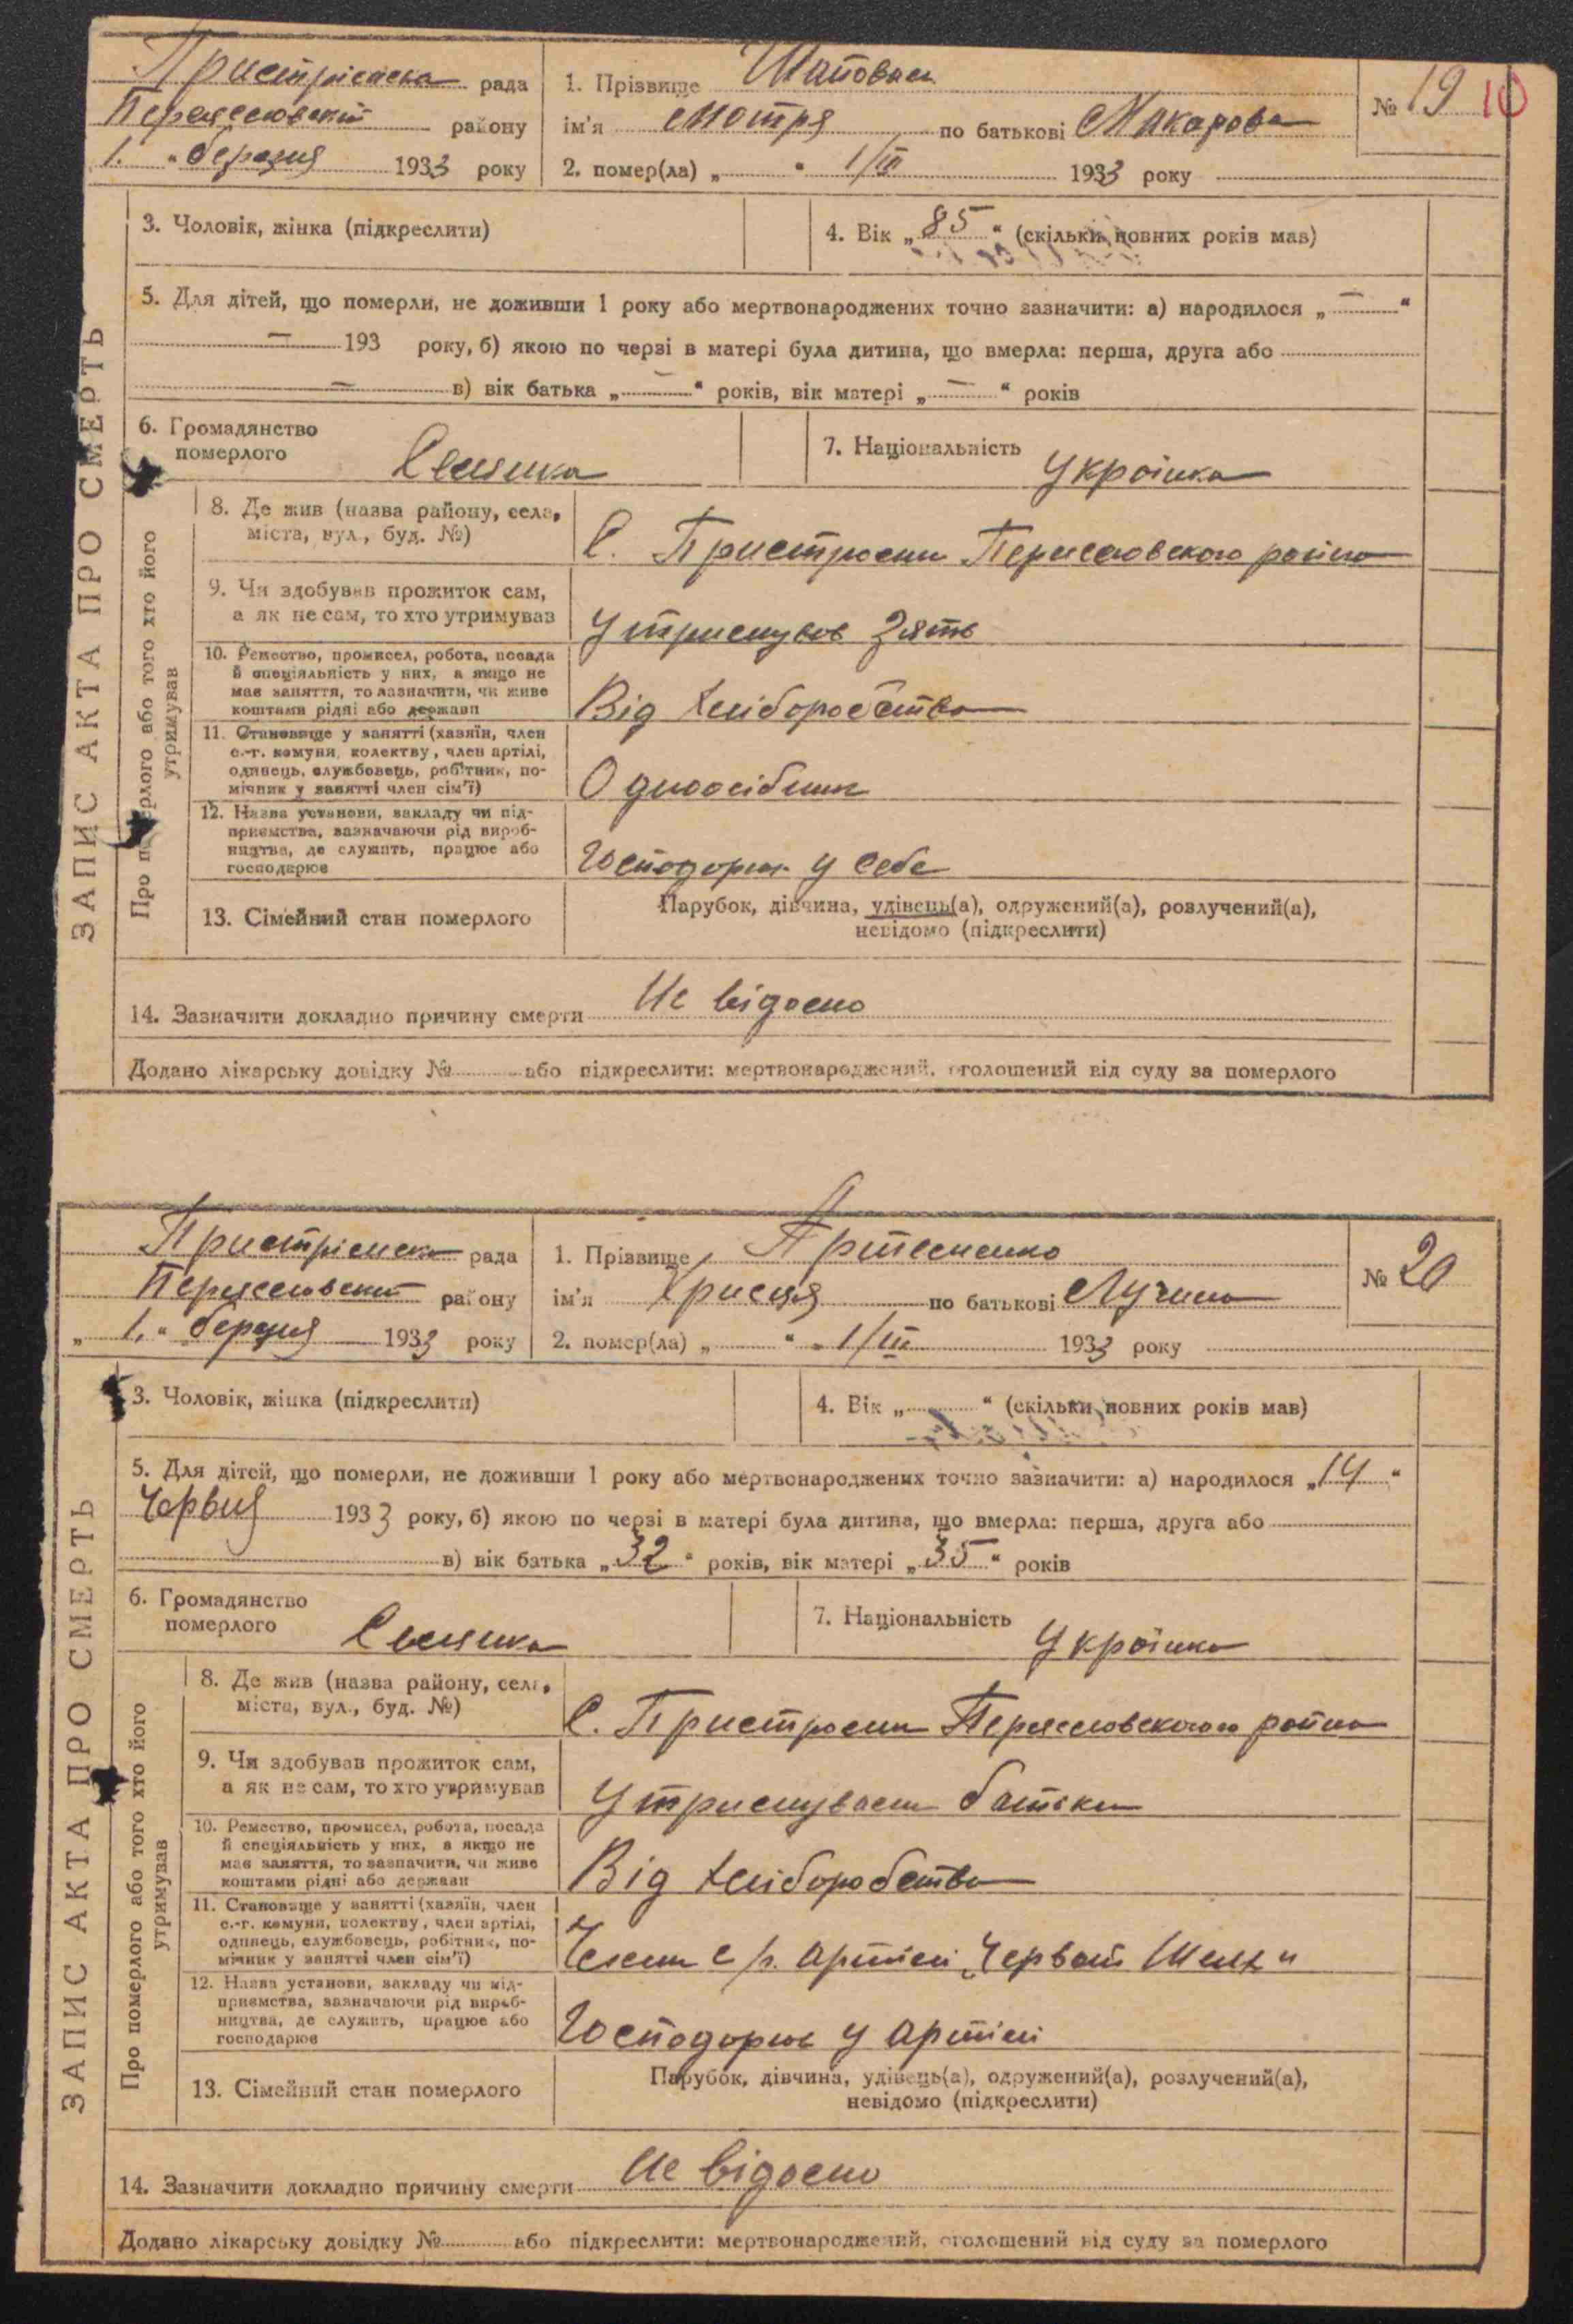 Пристрімська рада
Переяславський району
1. " березня 1933 року
1. Прізвище Шаповал
ім'я Мотря по батькові Макарова
2. помер(ла) „ " 1/III 1933 року
№ 19 10
ЗАПИС АКТА ПРО СМЕРТЬ
3. Чоловік, жінка (підкреслити)
4. Вік „ 85 " (скільки повних років мав)
5. Для дітей, що померли, не доживши 1 року або мертвонароджених точно зазначити: а) народилося „ — "
— 193 року, б) якою по черзі в матері була дитина, що вмерла: перша, друга або
— в) вік батька „ — " років, вік матері „ — " років
6. Громадянство
померлого Селянка
7. Національність Україінка
Про померлого або того хто його
утримував
8. Де жив (назва району, села,
міста, вул., буд. №)
С. Пристроми Переяславского району
9. Чи здобував прожиток сам,
а як не сам, то хто утримував
Утримував Зять
10. Ремество, промисел, робота, посада
й спеціяльність у них, а якщо не
має заняття, то зазначити, чи живе
коштами рідні або держави
Від хліборобства
11. Становище у занятті (хазяїн, член
с.-г. комуни, колектву, член артілі,
одинець, службовець, робітник, по-
мічник у занятті член сім'ї)
Одноосібник
12. Назва установи, закладу чи під-
приємства, зазначаючи рід вироб-
ництва, де служить, працює або
господарює
Господорює у себе
13. Сімейний стан померлого
Парубок, дівчина, удівець(а), одружений(а), розлучений(а),
невідомо (підкреслити)
14. Зазначити докладно причину смерти Не відомо
Додано лікарську довідку № або підкреслити: мертвонароджений, оголошений від суду за померлого
Пристрімська рада
Переяславський району
„ 1. " березня 1933 року
1. Прізвище Артеменко
ім'я Христя по батькові
2. помер(ла) „ " 1/III 1933 року
№ 20
ЗАПИС АКТА ПРО СМЕРТЬ
3. Чоловік, жінка (підкреслити)
4. Вік „ " (скільки повних років мав)
5. Для дітей, що померли, не доживши 1 року або мертвонароджених точно зазначити: а) народилося „ 14 "
Червня 1933 року, б) якою по черзі в матері була дитина, що вмерла: перша, друга або
в) вік батька „ 32 " років, вік матері „ 35 " років
6. Громадянство
померлого Селянка
7. Національність Україінка
Про померлого або того хто його
утримував
8. Де жив (назва району, села,
міста, вул., буд. №)
С. Пристроми Переяславского району
9. Чи здобував прожиток сам,
а як не сам, то хто утримував
Утримували батьки
10. Ремество, промисел, робота, посада
й спеціяльність у них, а якщо не
має заняття, то зазначити, чи живе
коштами рідні або держави
Від хліборобства
11. Становище у занятті (хазяїн, член
с.-г. комуни, колектву, член артілі,
одинець, службовець, робітник, по-
мічник у занятті член сім'ї)
Член с/г. артілі „Червоний Шлях"
12. Назва установи, закладу чи під-
приємства, зазначаючи рід вироб-
ництва, де служить, працює або
господарює
Господорює у артілі
13. Сімейний стан померлого
Парубок, дівчина, удівець(а), одружений(а), розлучений(а),
невідомо (підкреслити)
14. Зазначити докладно причину смерти Не відомо
Додано лікарську довідку № або підкреслити: мертвонароджений, оголошений від суду за померлого